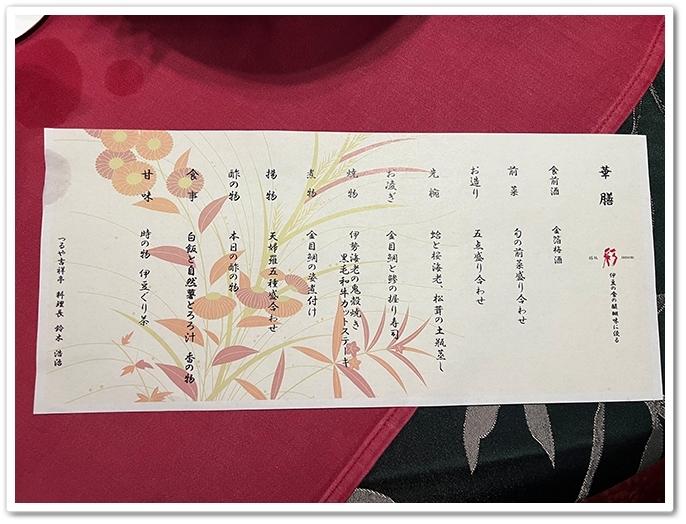 華膳
伊豆の食の醍醐味に浸る
食前酒 金箔梅酒
前菜 旬の前菜盛り合わせ
お造り 五点盛り合わせ
先椀 蛤と桜海老、松茸の土瓶蒸し
お凌ぎ 金目鯛と鯵の握り寿司
焼物 伊勢海老の鬼殻焼き
黒毛和牛カットステーキ
煮物 金目鯛の姿煮付け
揚物 天婦羅五種盛合わせ
酢の物 本日の酢の物
食事 白飯と自然薯とろろ汁 香の物
甘味 時の物 伊豆ぐり茶
つるや吉祥亭 料理長 鈴木 浩治